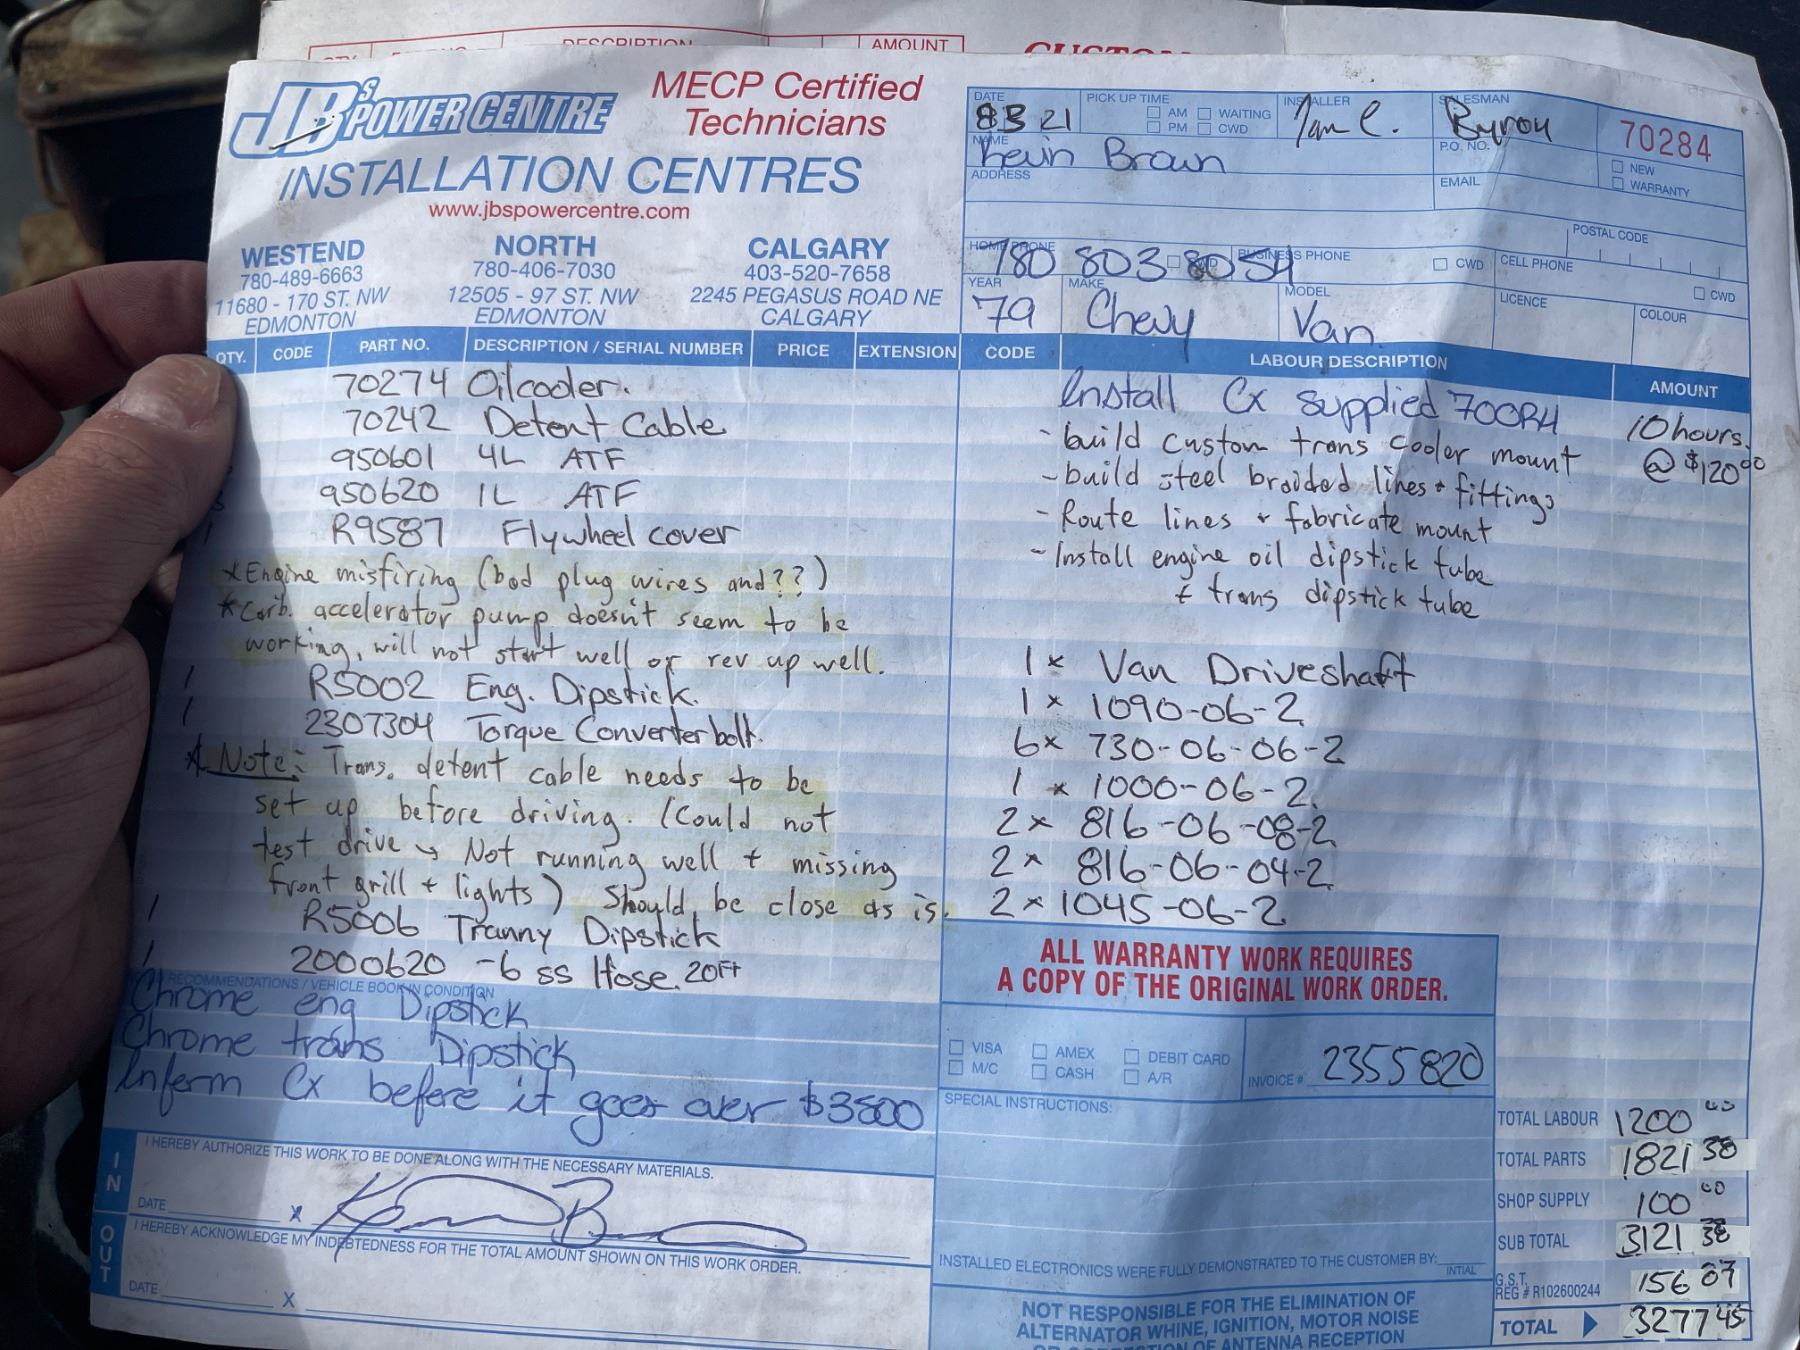 DESCRIPTION
AMOUNT
JB'S POWER CENTRE
MECP Certified
Technicians
INSTALLATION CENTRES
www.jbspowercentre.com
WESTEND
780-489-6663
11680 - 170 ST. NW
EDMONTON
NORTH
780-406-7030
12505 - 97 ST. NW
EDMONTON
CALGARY
403-520-7658
2245 PEGASUS ROAD NE
CALGARY
DATE
21
PICK UP TIME
AM
PM
WAITING
CWD
INSTALLER
SALESMAN
Byron
70284
NEW
WARRANTY
NAME
Kevin Brown
P.O. NO.
ADDRESS
EMAIL
POSTAL CODE
HOME PHONE
780 803-8054
CWD
BUSINESS PHONE
CWD
CELL PHONE
CWD
YEAR
79
MAKE
Chevy
MODEL
Van
LICENCE
COLOUR
QTY. CODE PART NO. DESCRIPTION / SERIAL NUMBER PRICE EXTENSION CODE LABOUR DESCRIPTION AMOUNT
70274 Oilcooler.
70242 Detent Cable
950601 4L ATF
950620 1L ATF
1 R9587 Flywheel cover
* Engine misfiring (bad plug wires and??)
* Carb. accelerator pump doesn't seem to be
working, will not start well or rev up well.
1 R5002 Eng. Dipstick.
1 2307304 Torque Converter bolt.
* Note: Trans. detent cable needs to be
set up before driving. (Could not
test drive → Not running well + missing
front grill + lights) Should be close as is.
1 R5006 Tranny Dipstick
1 2000620 -6 ss Hose. 20Ft
Install Cx supplied 700R4
10 hours.
@ $120.00
- build custom trans cooler mount
- build steel braided lines + fittings
- Route lines + fabricate mount
- Install engine oil dipstick tube
+ trans dipstick tube
1 x Van Driveshaft
1 x 1090-06-2
6x 730-06-06-2
1 x 1000-06-2
2x 816-06-08-2
2x 816-06-04-2
2x 1045-06-2
RECOMMENDATIONS / VEHICLE BOOK IN CONDITION
Chrome eng Dipstick
Chrome trans Dipstick
Inform Cx before it goes over $3500
ALL WARRANTY WORK REQUIRES
A COPY OF THE ORIGINAL WORK ORDER.
VISA
M/C
AMEX
CASH
DEBIT CARD
A/R
INVOICE # 2355820
SPECIAL INSTRUCTIONS:
IN
I HEREBY AUTHORIZE THIS WORK TO BE DONE ALONG WITH THE NECESSARY MATERIALS.
DATE
X
OUT
I HEREBY ACKNOWLEDGE MY INDEBTEDNESS FOR THE TOTAL AMOUNT SHOWN ON THIS WORK ORDER.
DATE
X
INSTALLED ELECTRONICS WERE FULLY DEMONSTRATED TO THE CUSTOMER BY:
INTIAL
NOT RESPONSIBLE FOR THE ELIMINATION OF
ALTERNATOR WHINE, IGNITION, MOTOR NOISE
OF ANTENNA RECEPTION
TOTAL LABOUR 1200 00
TOTAL PARTS 1821 38
SHOP SUPPLY 100 00
SUB TOTAL 3121 38
G.S.T.
REG # R102600244 156 07
TOTAL 3277 45